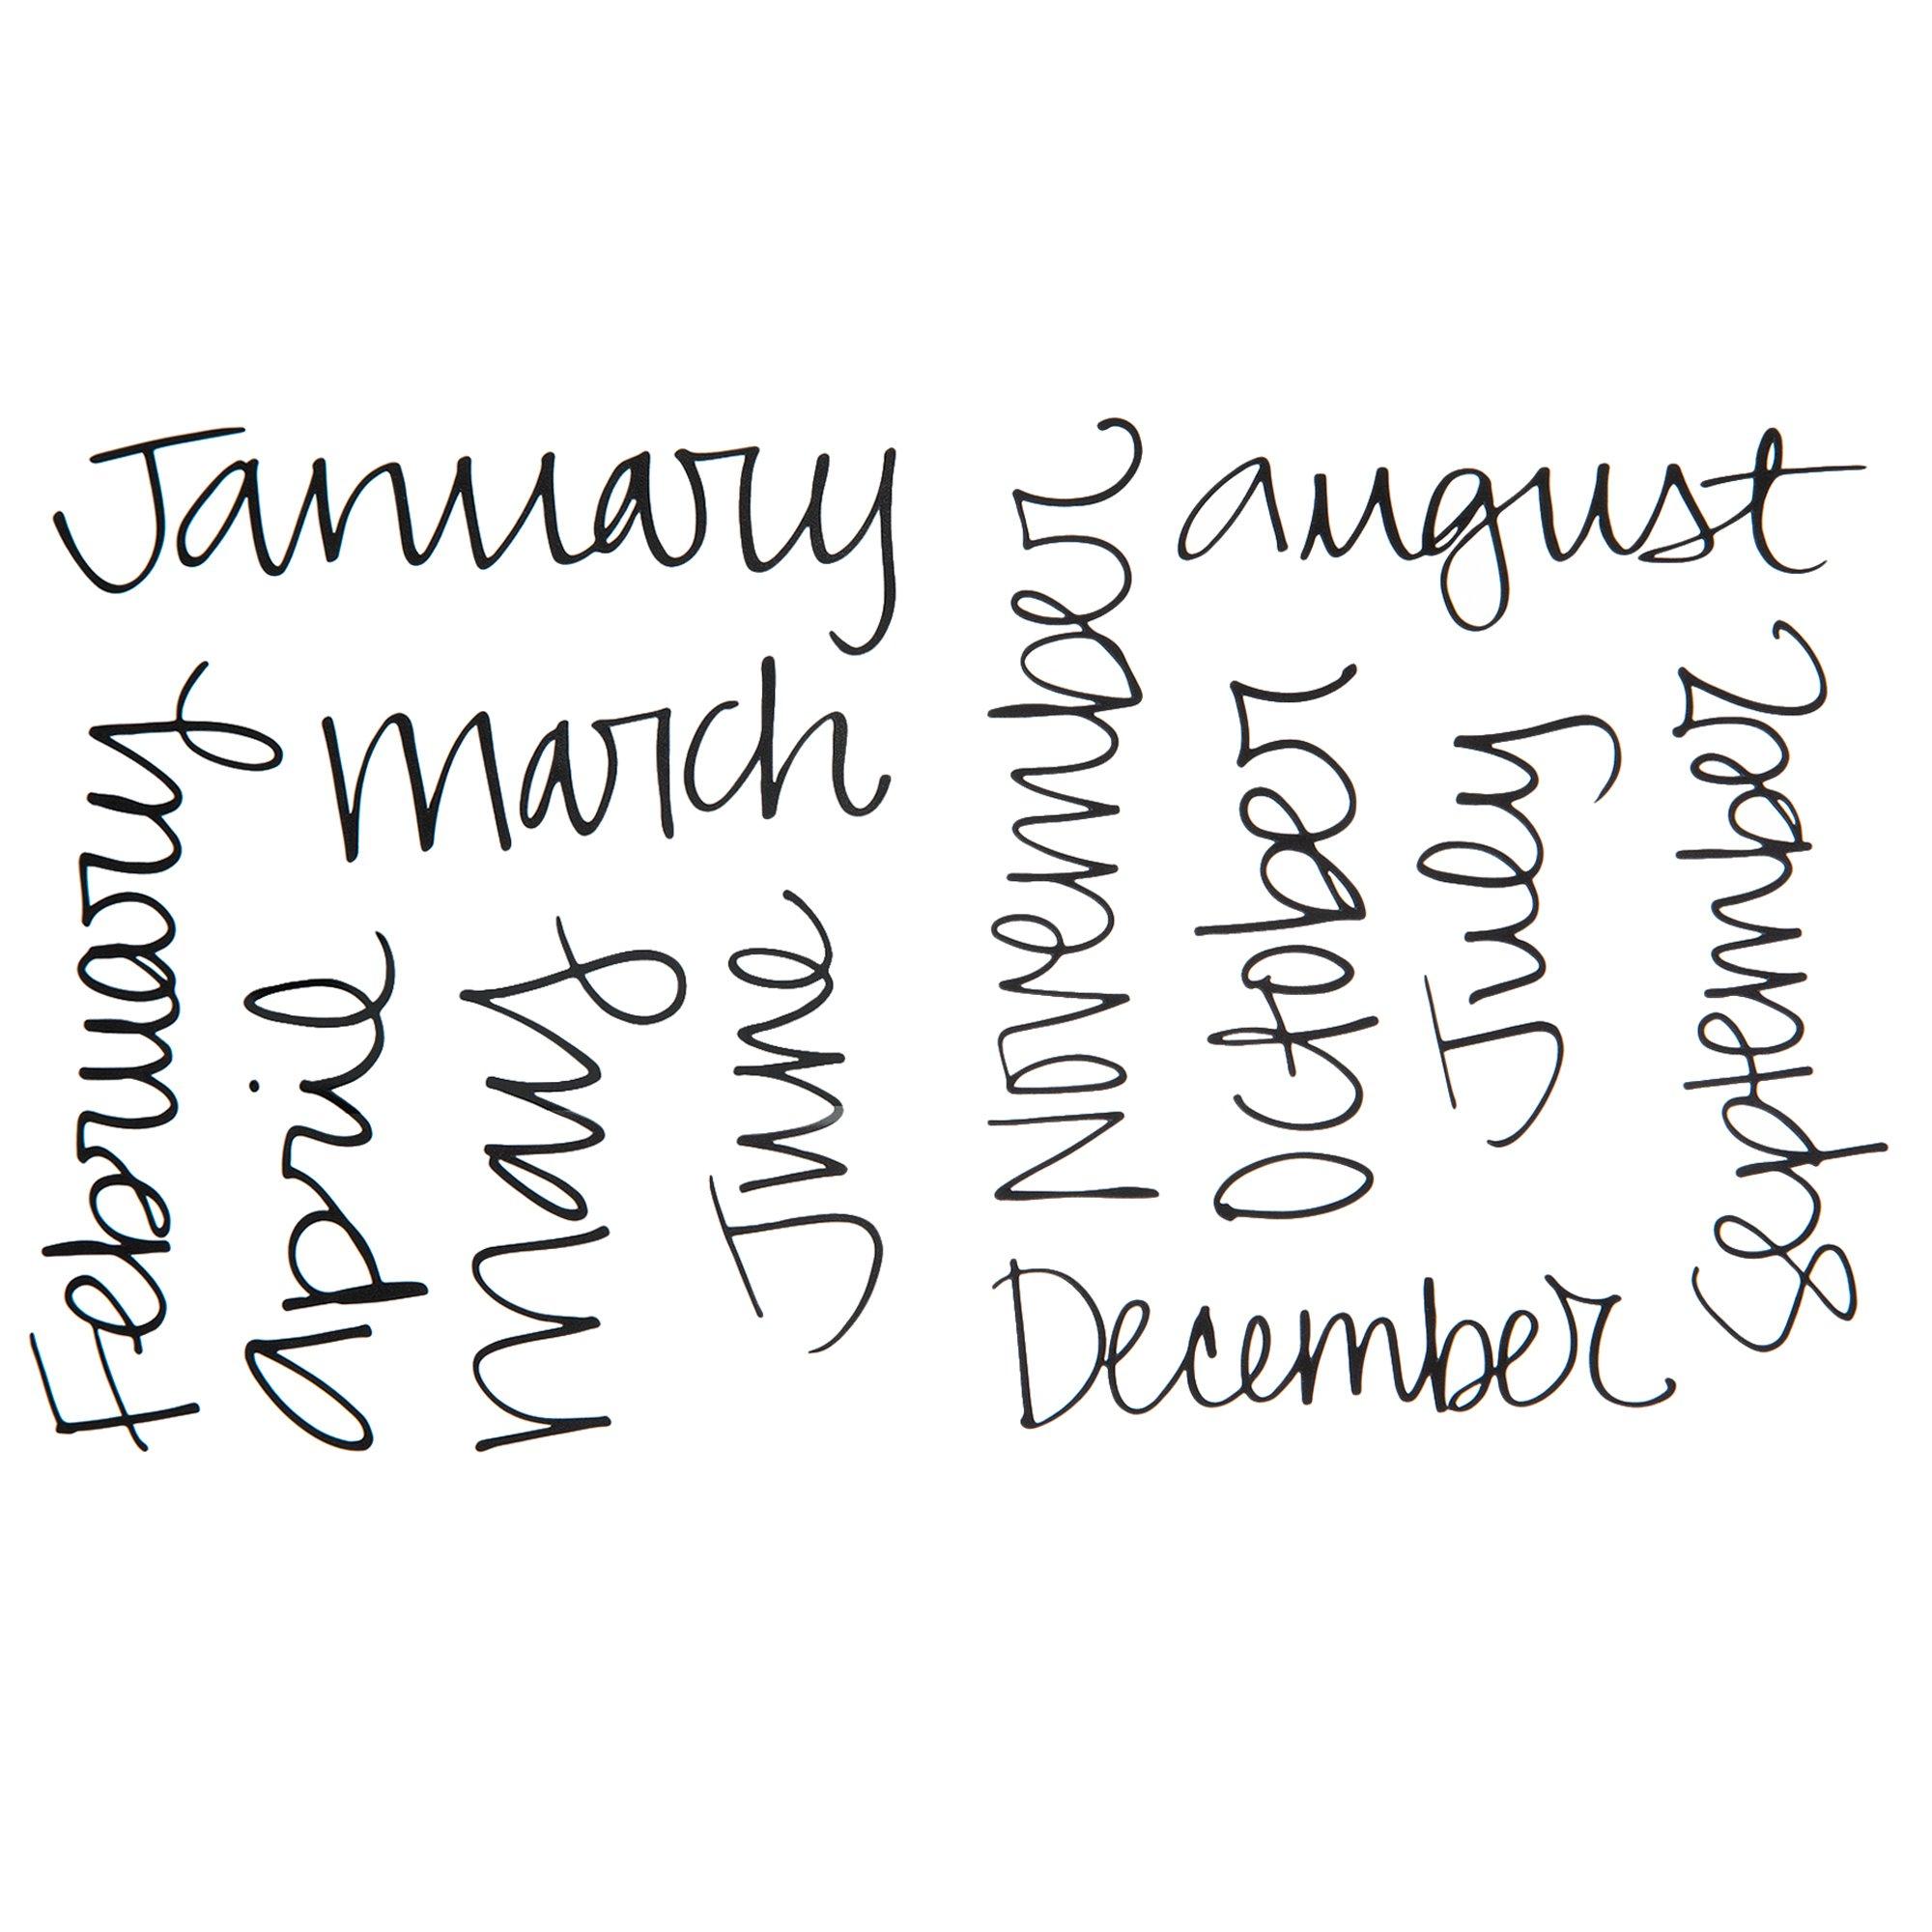 January
February
March
April
May
June
November
august
October
July
September
December